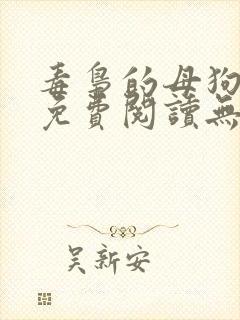 毒梟的母狗
免費閱讀無
吴新安